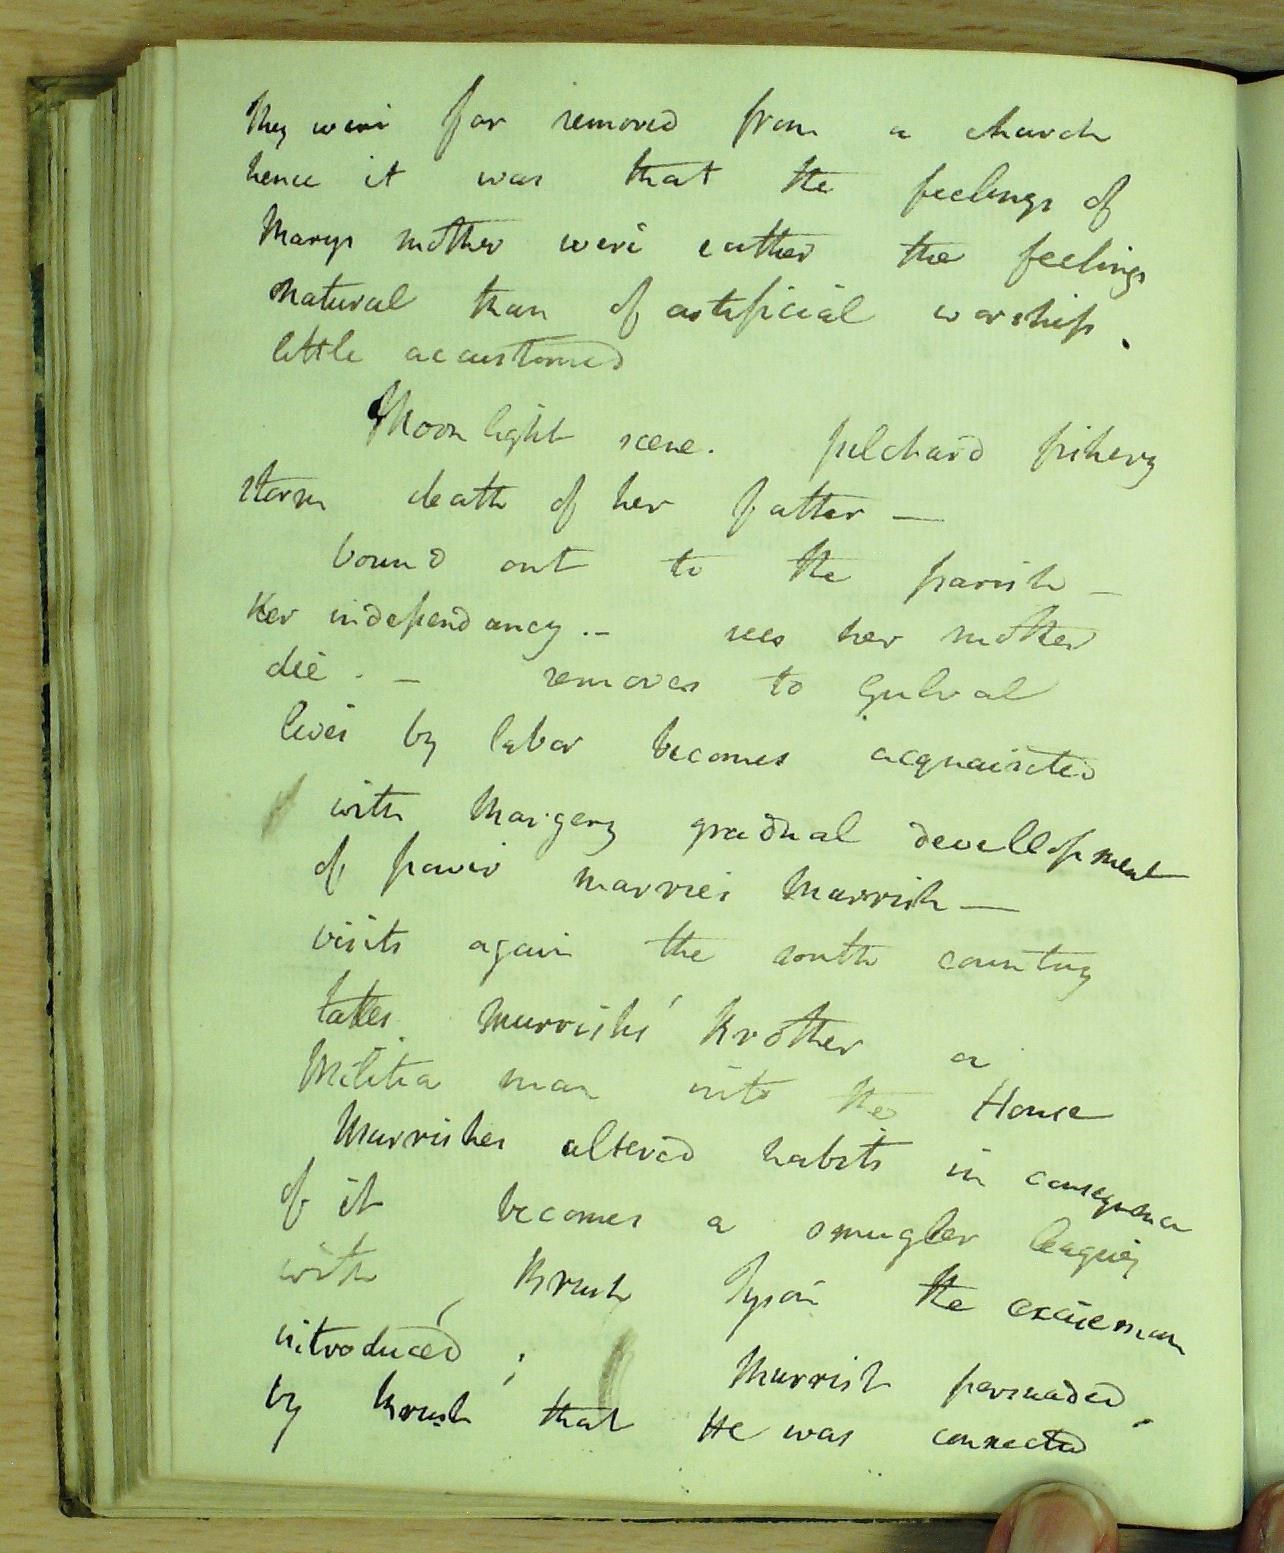 they were far removed from a church
hence it was that the feelings of
Marys mother were rather the feelings
natural than of artificial worship.
little accustomed
Moon light scene. pilchard fishery
storm death of her father —
bound out to the parish –
Her independancy. – sees her mother
die. – removes to Gulval
lives by labor becomes acquainted
with Margery gradual devellopment
of power marries Murrish —
visits again the south country
takes Murrishs' Brother a
Militia man into the House
Murrishes altered habits in consequence
of it becomes a smugler leagues
with Brush Tyson the exciseman
introduced; Murrish persuaded
by Brush that He was connected